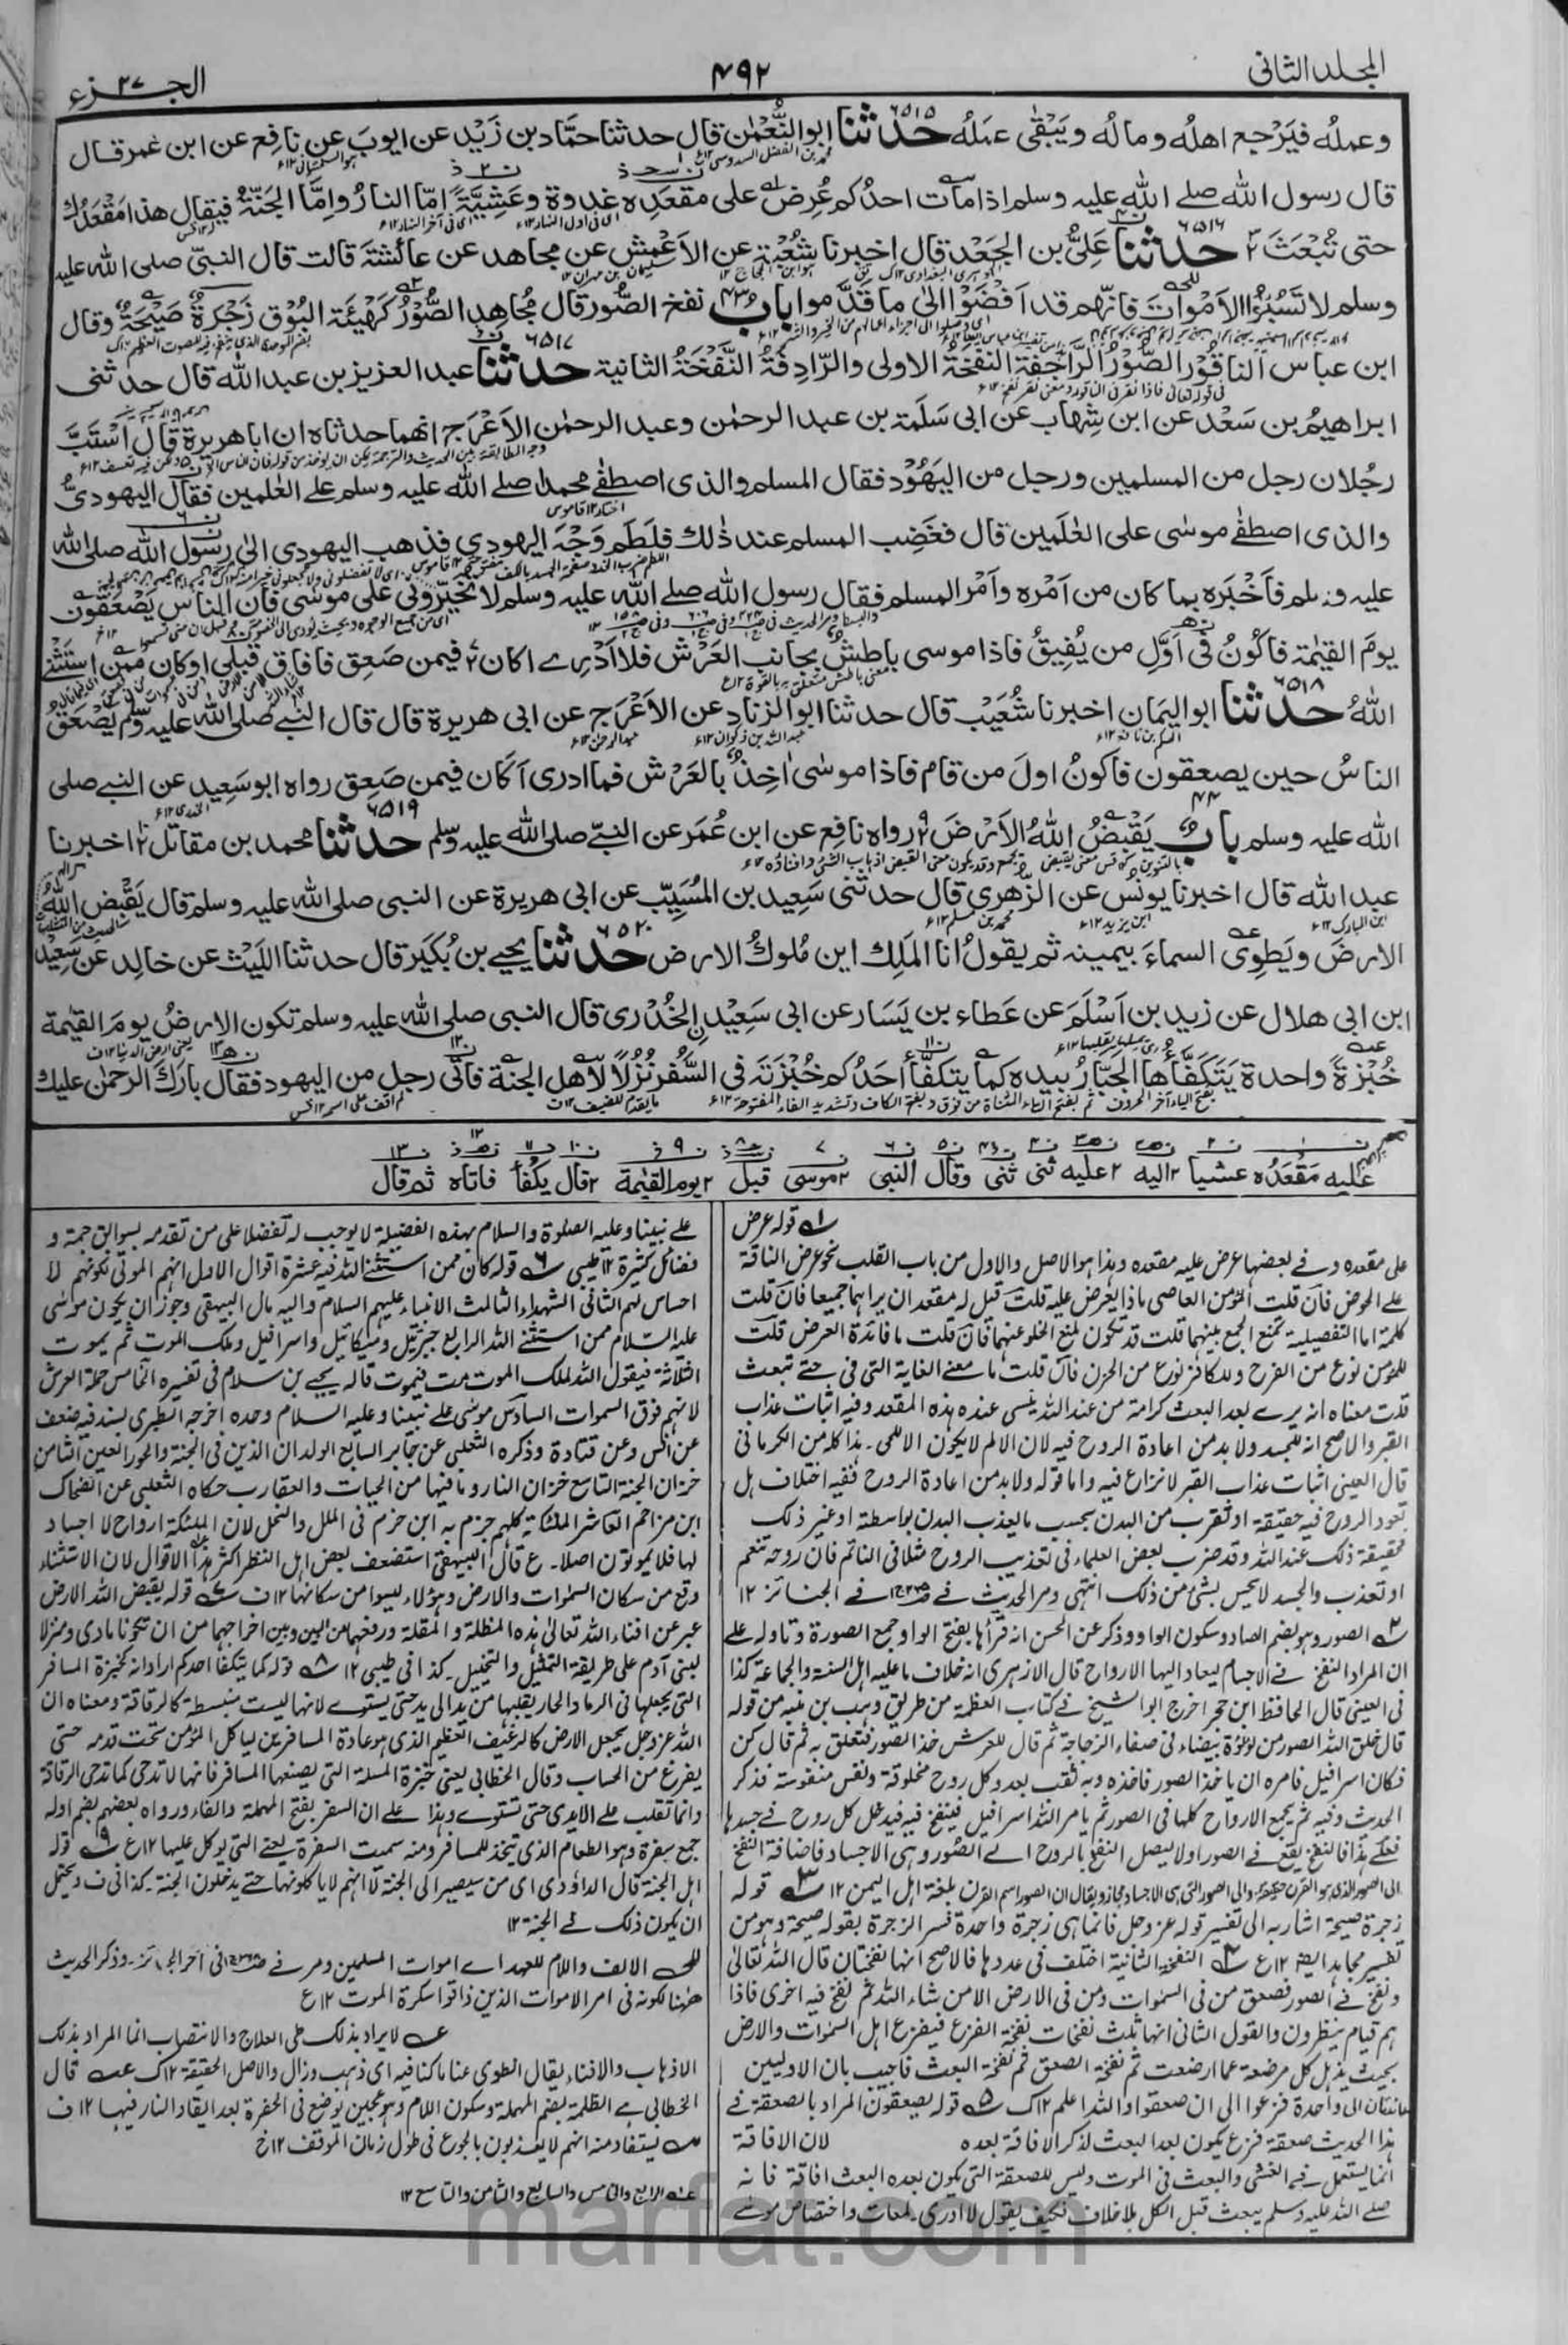 المجلد الثانی
٤٩٢
الجزء ٢٧
وعمله فيَرْجِع اهلُه ومالُه ويَبْقٰى عمَلُه حدثنا ٦٥١٥ ابوالنُّعْمٰن قال حدثنا حمَّاد بن زَيْد عن ايوبَ عن نافِع عن ابن عُمر قال
قال رسول الله صلے الله عليه وسلم اذا مات احدُكم عُرِض على مقعَدِه غدوة وعَشِيَّةً امّا النارُ وامَّا الجَنّةُ فيقال هذا مَقْعَدُك
حتى تُبْعَثَ حدثنا ٦٥١٦ عَلِىُّ بن الجَعْد قال اخبرنا شُعْبة عن الاَعْمش عن مجاهد عن عائشة قالت قال النبیّ صلى الله عليه
وسلم لا تَسُبّوا الاَمْواتَ فانّهم قد اَفْضَوْا الىٰ ما قَدَّموا باب نفخ الصُّور قال مُجاهد الصُّوْرُ كَهَيْئَةِ البُوْق زَجْرَةٌ صَيْحَةٌ وقال
ابن عباس الناقُوْر الصُّوْرُ الرَّاجِفَة النفخةُ الاولى والرَّادِفَةُ النَّفْخَةُ الثانية حدثنا ٦٥١٧ عبد العزيز بن عبد الله قال حدثنى
ابراهيمُ بن سَعْد عن ابن شِهاب عن ابى سَلَمَة بن عبد الرحمٰن وعبد الرحمٰن الاَعْرَج انهما حدثاه ان ابا هريرة قال اسْتَبَّ
رجُلان رجل من المسلمين ورجل من اليَهُوْد فقال المسلم والذى اصطفٰے محمدا صلے الله عليه وسلم على العٰلمين فقال اليهودىُّ
والذى اصطفٰے موسٰى على العٰلَمِين قال فغَضِب المسلم عند ذٰلك فلَطَم وَجْهَ اليهودى فذهب اليهودى الىٰ رسول الله صلى الله
عليه وسلم فاَخْبَره بما كان من اَمْره واَمْر المسلم فقال رسول الله صلے الله عليه وسلم لا تُخيّرونى على موسٰى فان الناس يَصْعَقون
يومَ القيٰمة فاكُونُ فى اَوَّلِ من يُفِيقُ فاذا موسى باطِش بجانب العَرْش فلا اَدْرِے اكان فيمن صَعِق فافاق قبلى او كان ممن استثنٰے
اللهُ حدثنا ٦٥١٨ ابو اليَمانِ اخبرنا شُعَيْب قال حدثنا ابو الزنادِ عن الاَعْرَج عن ابى هريرة قال قال النبى صلى الله عليه وسلم يَصْعَق
الناسُ حين يصعقون فاكونُ اولَ من قام فاذا موسٰى اٰخِذٌ بالعَرْش فما ادرى اَكان فيمن صَعِق رواه ابو سَعِيد عن النبى صلى
الله عليه وسلم بابٌ يَقْبِضُ اللهُ الاَرْضَ رواه نافِع عن ابن عُمَر عن النبىّ صلى الله عليه وسلم حدثنا ٦٥١٩ محمد بن مقاتل اخبرنا
عبد الله قال اخبرنا يونُس عن الزُّهرى قال حدثنى سَعِيد بن المُسَيِّب عن ابى هريرة عن النبى صلى الله عليه وسلم قال يَقْبِض الله
الارضَ ويَطوِى السماءَ بيمينه ثم يقولُ انا المَلِك اين مُلوكُ الارض حدثنا ٦٥٢٠ يحيے بن بُكَير قال حدثنا اللَّيث عن خالِد عن سَعِيْد
ابن ابى هلال عن زيد بن اَسْلَمَ عن عَطاء بن يَسَار عن ابى سَعِيْد ن الخُدْرى قال النبى صلى الله عليه وسلم تكون الارضُ يومَ القيٰمة
خُبْزةً واحدة يَتَكَفَّأُها الجَبَّارُ بيده كما يتكفَّأُ احَدُكم خُبْزَتَه فى السَّفَر نُزُلًا لاَهل الجنة فاَتٰى رجل من اليهود فقال بارَكَ الرحمٰن عليك
عليه مَقْعَدُه عشيا اليه عليه ثنى ثنى وقال النبى موسى قبل يوم القيٰمة قال يكفأ فاتاه ثم قال
قوله عرض
على مقعده وفے بعضها عرض عليه مقعده وهذا هو الاصل والاول من باب القلب نحو عرض الناقة
على الحوض فان قلت المؤمن العاصى ماذا يعرض عليه قلت قيل له مقعدان يراهما جميعا فان قلت
كلمة اما التفصيلية تمنع الجمع بينهما قلت قد تكون لمنع الخلو عنهما فان قلت ما فائدة العرض قلت
للمؤمن نوع من الفرح وللكافر نوع من الحزن فان قلت ما معنى الغاية التى فى حتے تبعث
قلت معناه انه يرے بعد البعث كرامة من عند الله ينسى عنده هذه المقعد وفيه اثبات عذاب
القبر والاصح انه للجسد ولا بد من اعادة الروح فيه لان الالم لا يكون الا للحى۔ هذا كله من الكرمانى
قال العينى اثبات عذاب القبر لا نزاع فيه واما قوله ولا بد من اعادة الروح ففيه اختلاف هل
تعود الروح فيه حقيقة او تقرب من البدن بحسب ما يعذب البدن بواسطته او غير ذلك
فحقيقة ذلك عند الله وقد ضرب بعض العلماء فى تعذيب الروح مثلا فى النائم فان روحه تنعم
او تعذب والجسد لا يحس بشئ من ذلك انتهى ومر الحديث فے فے الجنائز ١٢
الصور وهو بضم الصاد وسكون الواو وذكر عن الحسن انه قرأها بفتح الواو جمع الصورة وتاوله على
ان المراد النفخ فے الاجسام ليعاد اليها الارواح قال الازهرى انه خلاف ما عليه اهل السنة والجماعة كذا
فى العينى قال الحافظ ابن حجر اخرج ابو الشيخ فے كتاب العظمة من طريق وهب بن منبه من قوله
قال خلق الله الصور من لؤلؤة بيضاء فى صفاء الزجاجة ثم قال للعرش خذ الصور فتعلق به ثم قال كن
فكان اسرافيل فامره ان ياخذ الصور فاخذه وبه ثقب بعدد كل روح مخلوقة ونفس منفوسة فذكر
الحديث وفيه ثم يجمع الارواح كلها فى الصور ثم يامر الله اسرافيل فينفخ فيه فيدخل كل روح فے جسدها
فعلے هذا فالنفخ يقع فے الصور اولا ليصل النفخ بالروح الے الصور وهى الاجساد فاضافة النفخ
الى الصور الذى هو القرن حقيقة والى الصور التى هى الاجساد مجاز ويقال ان الصور اسم القرن بلغة اهل اليمن ١٢ قوله
زجرة صيحة اشار به الى تفسير قوله عز وجل فانما هى زجرة واحدة فسر الزجرة بقوله صيحة وهو من
تفسير مجاهد ايضا ١٢ع النفخة الثانية اختلف فى عددها فالاصح انها نفختان قال الله تعالى
ونفخ فے الصور فصعق من فى السمٰوات ومن فى الارض الا من شاء الله ثم نفخ فيه اخرى فاذا
هم قيام ينظرون والقول الثانى انها ثلٰث نفخات نفخة الفزع فيفزع اهل السمٰوات والارض
بحيث يذهل كل مرضعة عما ارضعت ثم نفخة الصعق ثم نفخة البعث فاجيب بان الاوليين
عائدتان الى واحدة فزعوا الى ان صعقوا والله اعلم ١٢ك قوله يصعقون المراد بالصعقة فے
هذا الحديث صعقة فزع يكون بعد البعث لذكر الافاقة بعده لان الافاقة
انما يستعمل فے الغشى والبعث فى الموت وليس للصعقة التى يكون بعده البعث افاقة فانه
صلے الله عليه وسلم يبعث قبل الكل بلا خلاف فكيف يقول لا ادرى۔ لمعات واختصاص موسٰے
علے نبينا وعليه الصلوة والسلام بهذه الفضيلة لا يوجب له تفضلا على من تقدمه بسوابق جمة و
فضائل كثيرة ١٢ طيبى قوله كان ممن استثنے الله فيه عشرة اقوال الاول انهم الموتى لكونهم لا
احساس لهم الثانى الشهداء الثالث الانبياء عليهم السلام واليه مال البيهقى وجوز ان يكون موسٰى
عليه السلام ممن استثنے الله الرابع جبرئيل وميكائيل واسرافيل وملك الموت ثم يموت
الثلاثة فيقول الله لملك الموت مت فيموت قاله يحيے بن سلام فى تفسيره الخامس حملة العرش
لانهم فوق السموات السادس موسٰى علے نبينا وعليه السلام وحده اخرجه الطبرى بسند فيه ضعف
عن انس وعن قتادة وذكره الثعلبى عن جابر السابع الولدان الذين فى الجنة والحور العين الثامن
خزان الجنة التاسع خزان النار وما فيها من الحيات والعقارب حكاه الثعلبى عن الضحاك
ابن مزاحم العاشر الملٰئكة كلهم جزم به ابن حزم فى الملل والنحل لان الملٰئكة ارواح لا اجساد
لها فلا يموتون اصلا۔ ع قال البيهقى استضعف بعض اهل النظر اكثر هذا الاقوال لان الاستثناء
وقع من سكان السمٰوات والارض وهؤلاء ليسوا من سكانها ١٢ف قوله يقبض الله الارض
عبر عن افناء الله تعالى هذه المظلة و المقلة ورفعهما من البين وبين اخراجهما من ان تكونا ماوى ومنزلا
لبنى آدم على طريقة التمثيل والتخييل۔ كذا فى طيبى ١٢ قوله كما يتكفأ احدكم اراد انه كخبزة المسافر
التى يجعلها فى الرماد الحار يقلبها من يد الى يد حتى يستوے لانها ليست منبسطة كالرقاقة ومعناه ان
الله عز وجل يجعل الارض كالرغيف العظيم الذى هو عادة المسافرين لياكل المؤمن تحت قدمه حتى
يفرغ من الحساب وقال الخطابى يعنى خبزة الملة التى يصنعها المسافر فانها لا تدحى كما تدحى الرقاقة
وانما تقلب على الايدى حتى تستوے وهذا علے ان السفر بفتح المهملة والفاء ورواه بعضهم بضم اوله
جمع سفرة وهو الطعام الذى يتخذ للمسافر ومنه سميت السفرة يعنے التى يوكل عليها ١٢ع قوله
اهل الجنة قال الداؤدى اى من سيصير الى الجنة لا انهم لا ياكلونها حتے يدخلون الجنة۔ كذا فى ف ويحتمل
ان يكون ذلك فے الجنة ١٢
الالف واللام للعهد اے اموات المسلمين ومر فے فى آخر الجنائز۔ وذكر الحديث
هٰهنا لكونه فى امر الاموات الذين ذاقوا سكرة الموت ١٢ع
لا يراد بذلك طى العلاج والانتصاب انما المراد بذلك
الاذهاب والافناء يقال انطوى عنا ما كنا فيه اى ذهب وزال والاصل الحقيقة ١٢ك قال
الخطابى هے الظلمة بضم المهملة وسكون اللام وهو عجين توضع فى الحفرة بعد ايقاد النار فيها ١٢ف
يستفاد منه انهم لا يعذبون بالجوع فى طول زمان الموقف ١٢خ
الرابع والخامس والسابع والثامن والتاسع ١٢
marfat.com